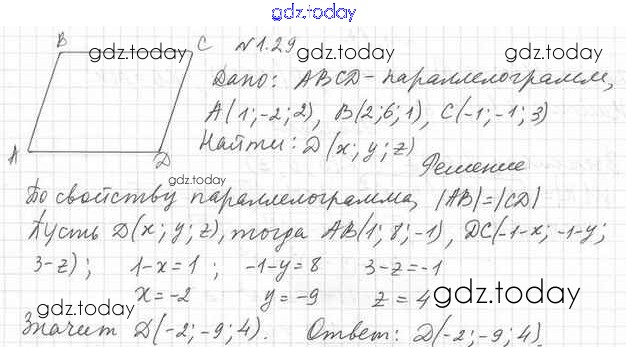 gdz.today
B C №1.29
gdz.today gdz.today gdz.today
Дано: ABCD - параллелограмм,
A(1;-2;2), B(2;6;1), C(-1;-1;3)
A D Найти: D(x;y;z)
Решение
gdz.today
По свойству параллелограмма, |AB|=|CD|
Пусть D(x;y;z), тогда AB(1;8;-1), DC(-1-x;-1-y;
3-z); 1-x=1; -1-y=8 3-z=-1
x=-2 y=-9 z=4
gdz.today gdz.today
Значит D(-2;-9;4). Ответ: D(-2;-9;4).
gdz.today